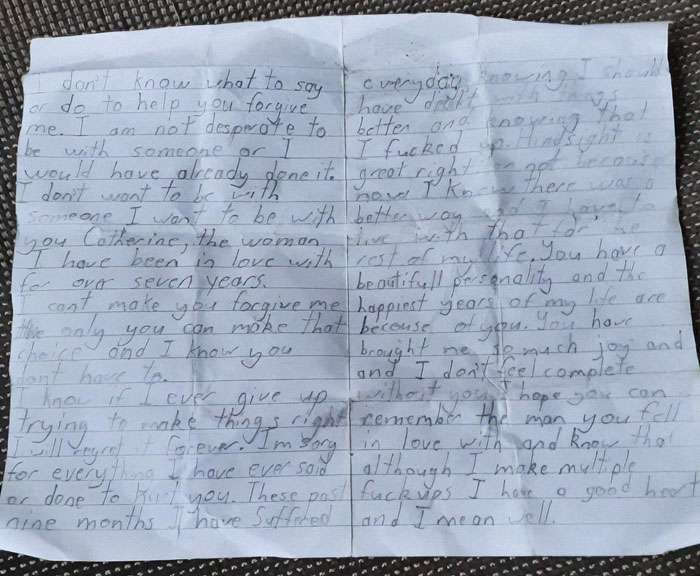 I don't know what to say
or do to help you forgive
me. I am not desperate to
be with someone or I
would have already done it.
I don't want to be with
someone I want to be with
you Catherine, the woman
I have been in love with
for over seven years.
I can't make you forgive me
the only you can make that
choice and I know you
dont have to.
I know if I ever give up
trying to make things right
I will regret forever. I'm sory
for everything I have ever said
or done to hurt you. These past
nine months I have suffered
everyday knowing I should
have dealt with things
better and knowing that
I fucked up. Hindsight is
great right or not because
now I know there was a
better way and I have to
live with that for the
rest of my life. You have a
beautifull personality and the
happiest years of my life are
because of you. You have
brought me so much joy and
and I don't feel complete
without you. I hope you can
remember the man you fell
in love with and know that
although I make multiple
fuck ups I have a good heart
and I mean well.